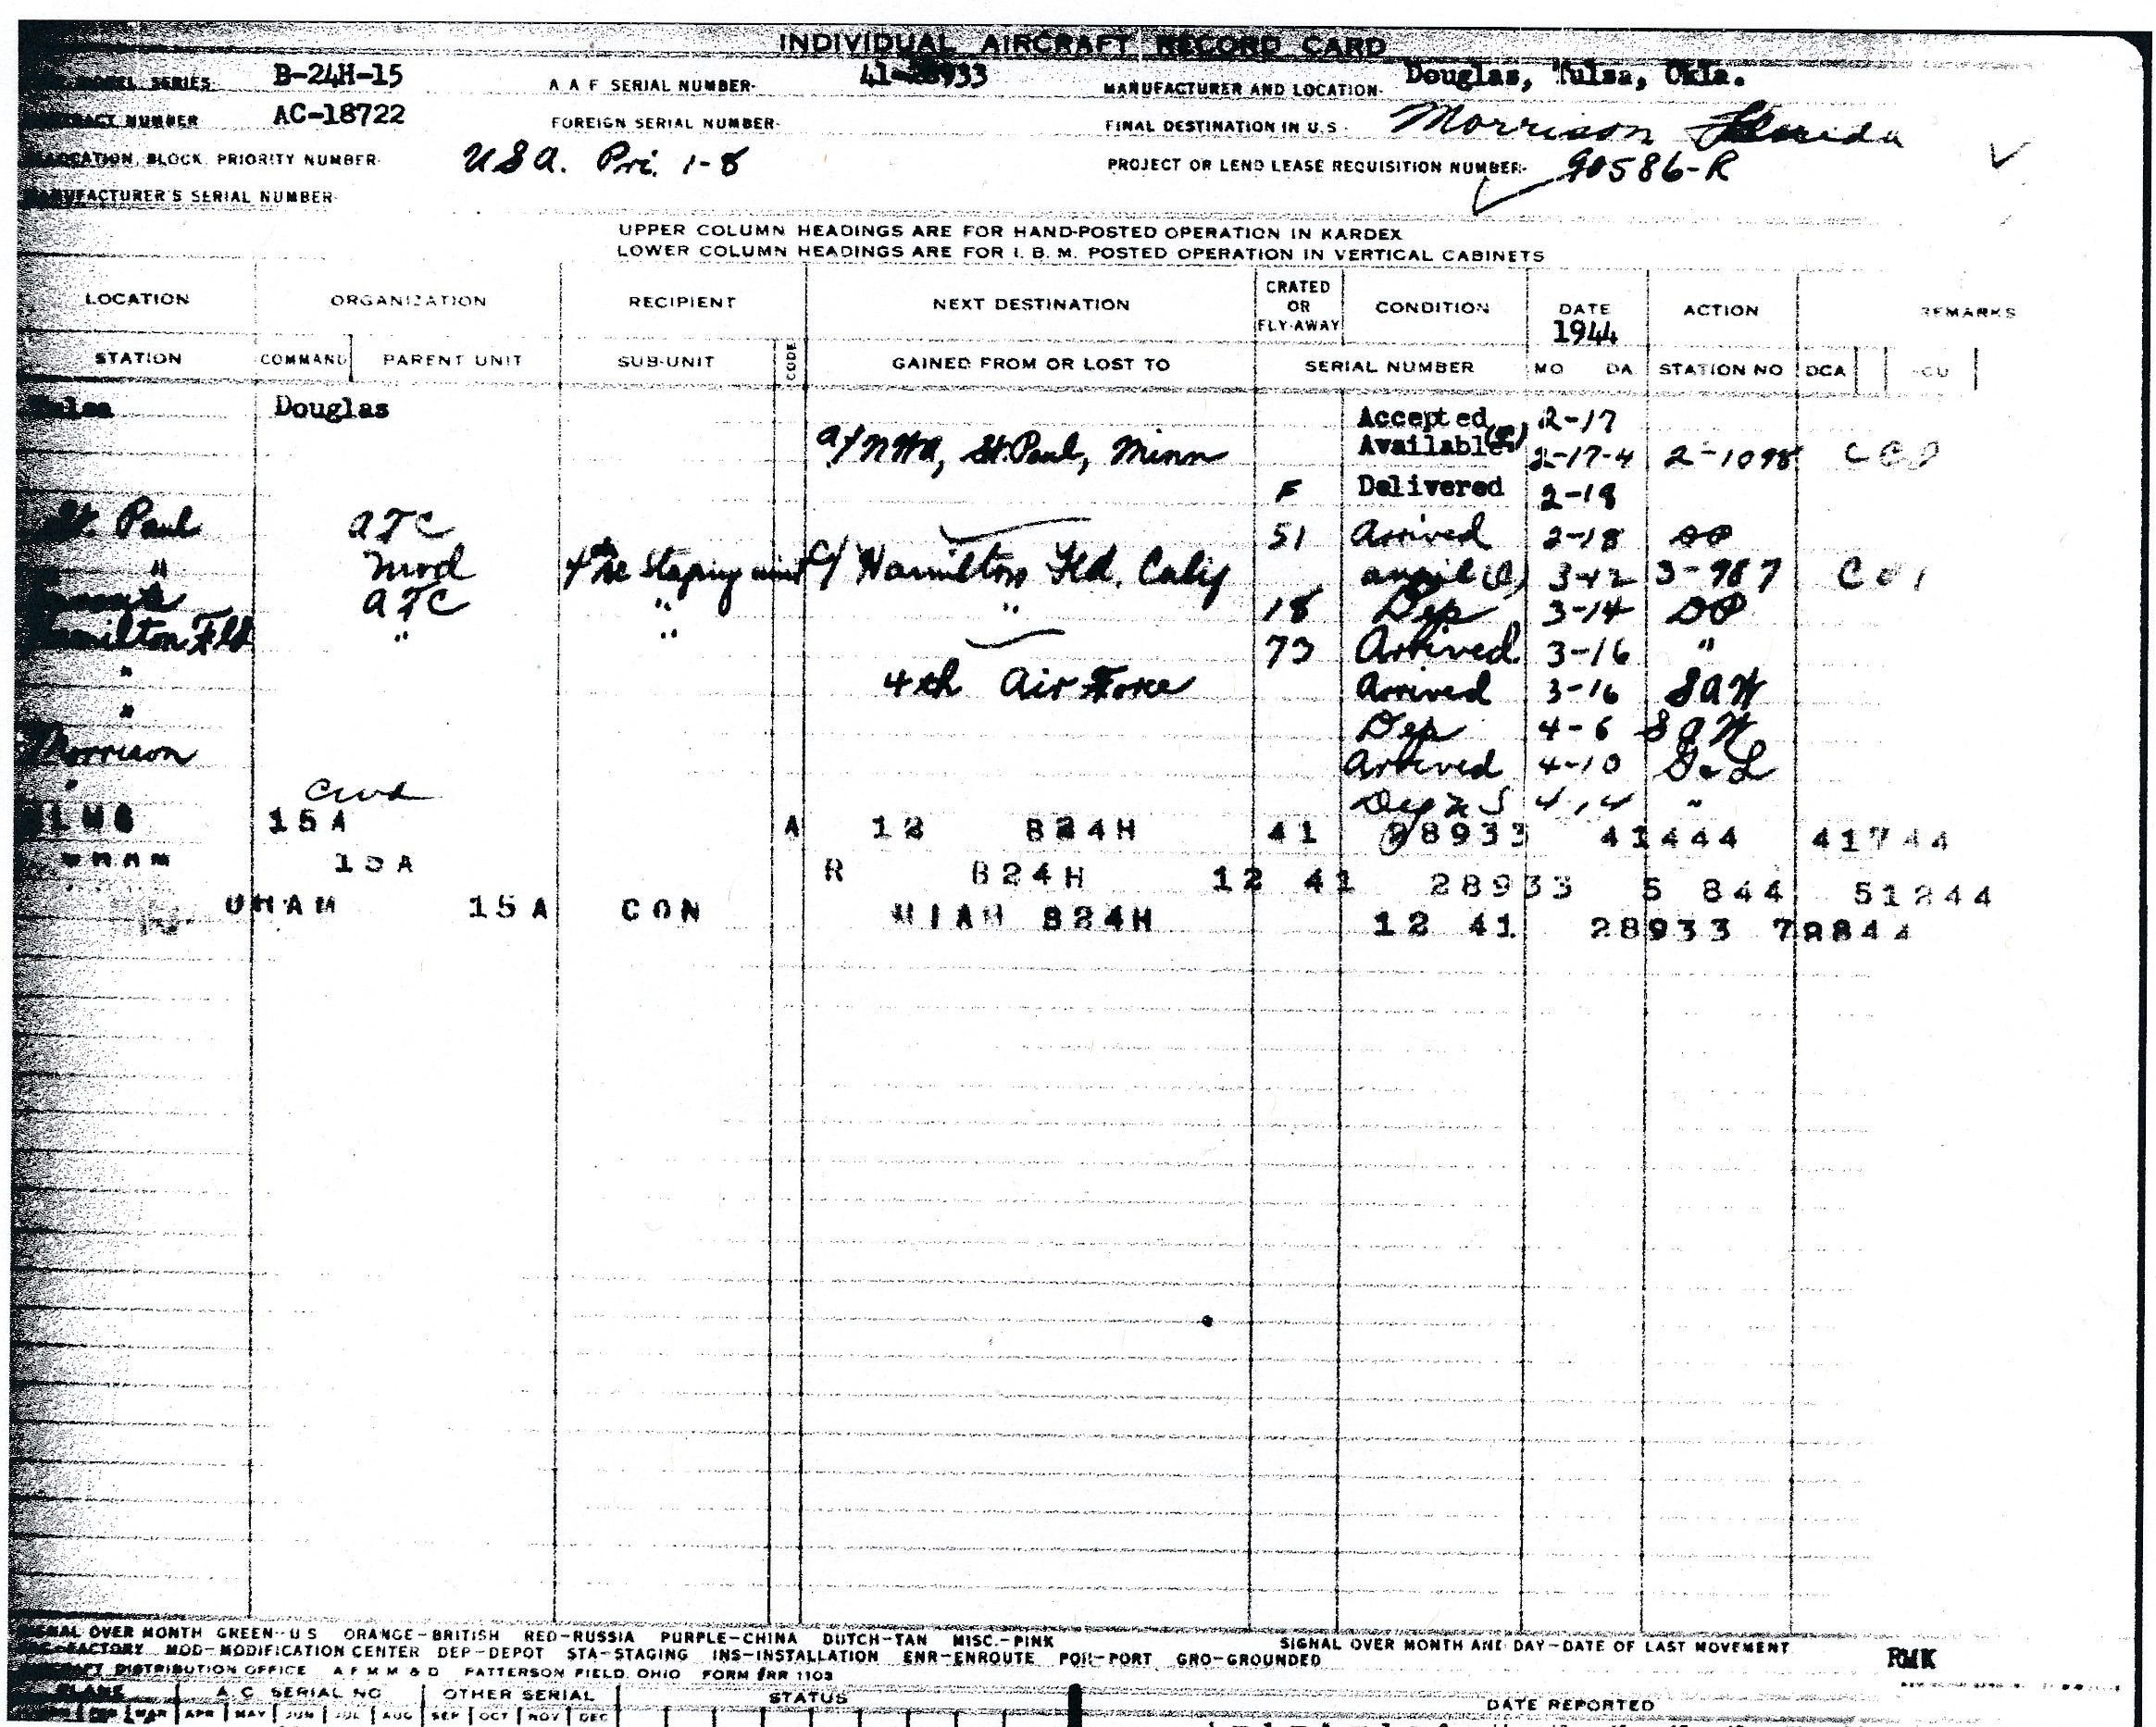 INDIVIDUAL AIRCRAFT RECORD CARD
MODEL SERIES: B-24H-15 A A F SERIAL NUMBER- 41-28933 MANUFACTURER AND LOCATION- Douglas, Tulsa, Okla.
CONTRACT NUMBER AC-18722 FOREIGN SERIAL NUMBER- FINAL DESTINATION IN U.S: Morrison Florida
ALLOCATION, BLOCK, PRIORITY NUMBER- USA. Pri. 1-8 PROJECT OR LEND LEASE REQUISITION NUMBER- 90586-R
MANUFACTURER'S SERIAL NUMBER-
UPPER COLUMN HEADINGS ARE FOR HAND-POSTED OPERATION IN KARDEX
LOWER COLUMN HEADINGS ARE FOR I. B. M. POSTED OPERATION IN VERTICAL CABINETS
LOCATION ORGANIZATION RECIPIENT NEXT DESTINATION CRATED OR FLY-AWAY CONDITION DATE 1944 ACTION REMARKS
STATION COMMAND PARENT UNIT SUB-UNIT CODE GAINED FROM OR LOST TO SERIAL NUMBER MO DA STATION NO DCA CU
Tulsa Douglas Accepted 2-17
a/ NWA, St. Paul, Minn Available 2-17-4 2-1098
F Delivered 2-18
St. Paul ATC 51 Arrived 2-18
" Mod 4th Staging unit c/ Hamilton Fld. Calif 3-12 3-987
ATC " " 18 Dep 3-14
Hamilton Fld " " 73 Arrived 3-16 "
" 4th Air Force Arrived 3-16 SAW
" Dep 4-6 SAW
Morrison Arrived 4-10
" Dep 4-14 "
15A A 12 B24H 41 28933 41444 41744
15A R B24H 12 41 28933 5 844 51244
UHAM 15A CON B24H 12 41 28933
SIGNAL OVER MONTH GREEN-U S ORANGE-BRITISH RED-RUSSIA PURPLE-CHINA DUTCH-TAN MISC.-PINK SIGNAL OVER MONTH AND DAY-DATE OF LAST MOVEMENT
FACTORY MOD-MODIFICATION CENTER DEP-DEPOT STA-STAGING INS-INSTALLATION ENR-ENROUTE POR-PORT GRO-GROUNDED RMK
AIRCRAFT DISTRIBUTION OFFICE A F M M & D PATTERSON FIELD, OHIO FORM 1103
PLANE A C SERIAL NO OTHER SERIAL STATUS DATE REPORTED
FEB MAR APR MAY JUN JUL AUG SEP OCT NOV DEC